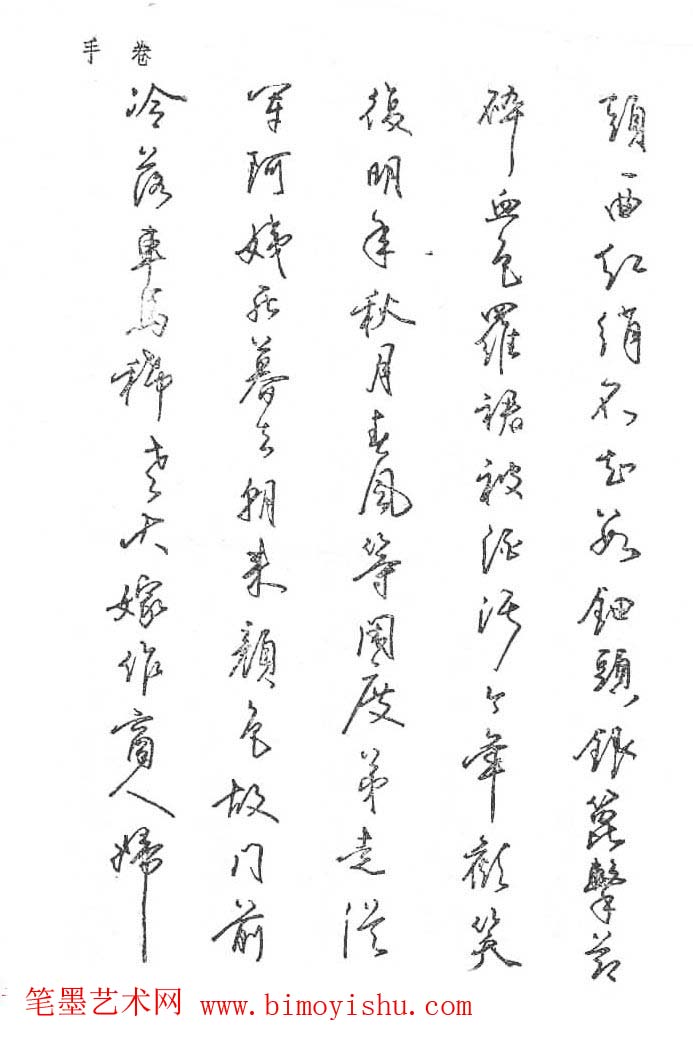 手卷
頭一曲红绡不知数鈿頭銀篦擊節
碎血色羅裙被酒污今年歡笑
復明年秋月春風等閒度弟走從
军阿姨死暮去朝来顏色故門前
冷落車馬稀老大嫁作商人婦
笔墨艺术网 www.bimoyishu.com